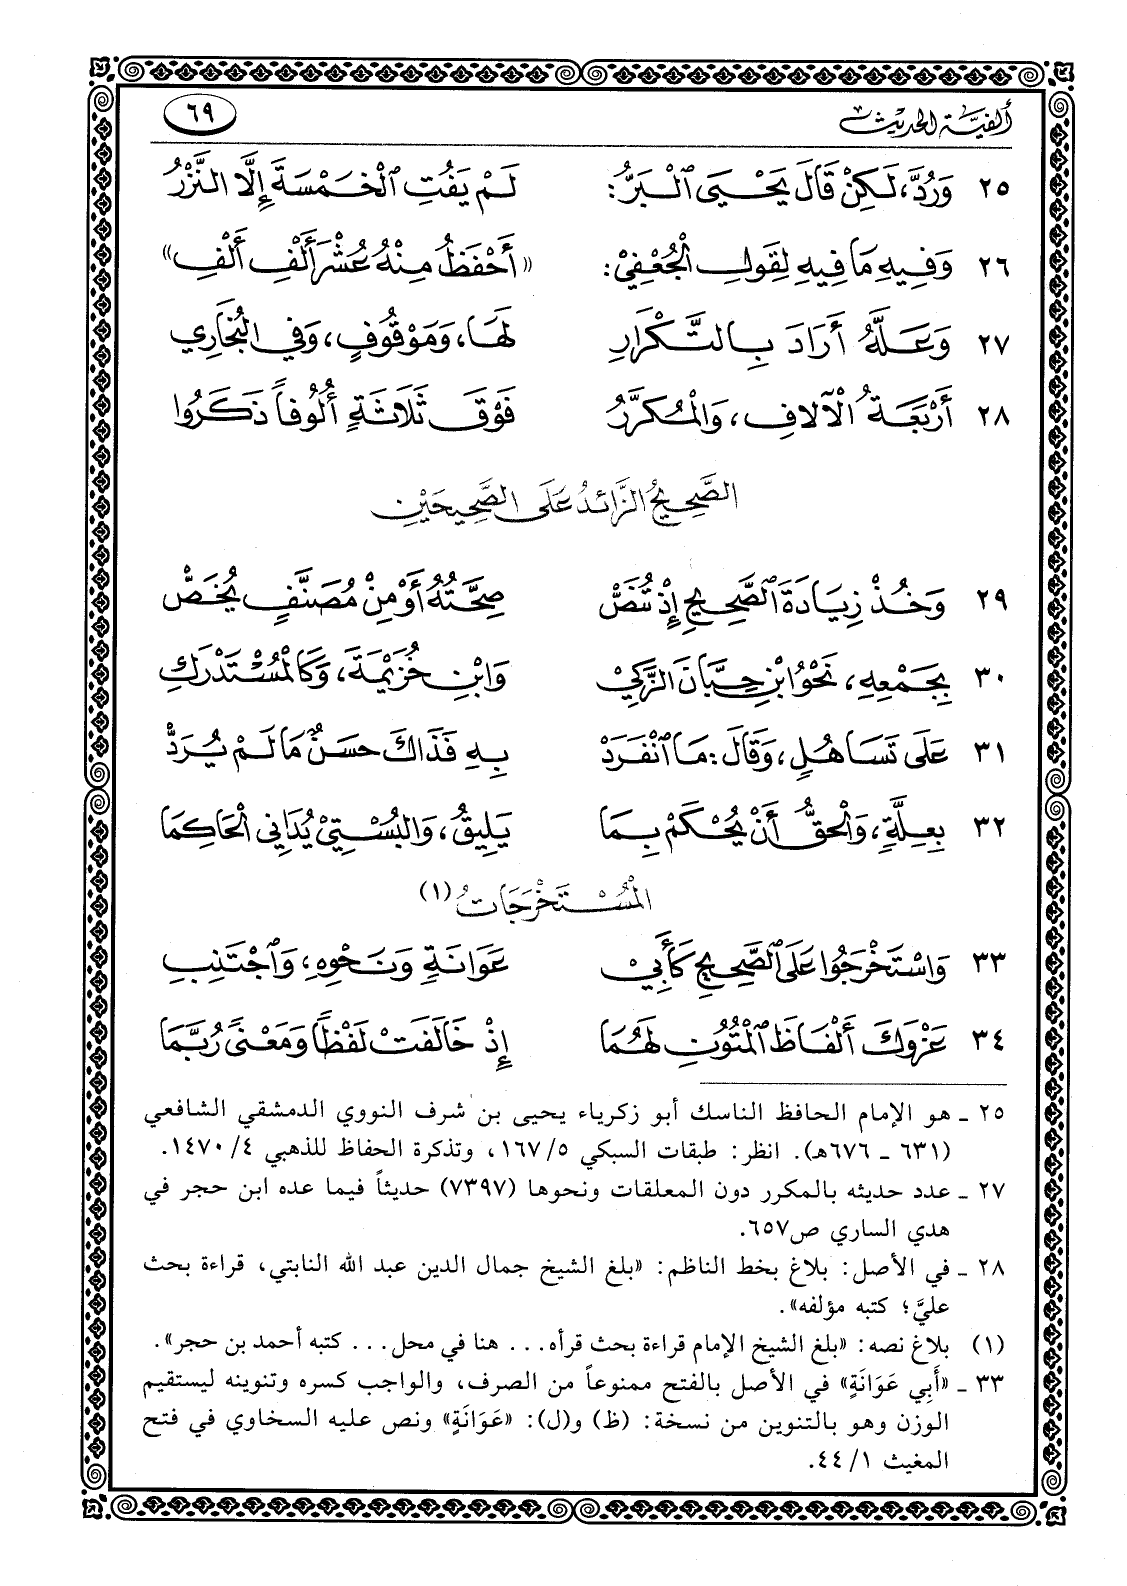 ألفية الحديث ٦٩
٢٥ وَرُدَّ، لَكِنْ قَالَ يَحْيَى الْبَرُّ: لَمْ يَفُتِ الْخَمْسَةَ إِلَّا النَّزْرُ
٢٦ وَفِيهِ مَا فِيهِ لِقَوْلِ الْجُعْفِيْ: «أَحْفَظُ مِنْهُ عُشْرَ أَلْفِ أَلْفِ»
٢٧ وَعَلَّهُ أَرَادَ بِالتَّكْرَارِ لَهَا، وَمَوْقُوفٍ، وَفِي الْبُخَارِي
٢٨ أَرْبَعَةُ الْآلَافِ، وَالْمُكَرَّرُ فَوْقَ ثَلَاثَةٍ أُلُوفاً ذَكَرُوا
الصَّحِيحُ الزَّائِدُ عَلَى الصَّحِيحَيْنِ
٢٩ وَخُذْ زِيَادَةَ الصَّحِيحِ إِذْ تُنَصُّ صِحَّتُهُ أَوْ مِنْ مُصَنَّفٍ يُخَصُّ
٣٠ بِجَمْعِهِ، نَحْوُ ابْنِ حِبَّانَ الزَّكِيْ وَابْنِ خُزَيْمَةَ، وَكَالْمُسْتَدْرَكِ
٣١ عَلَى تَسَاهُلٍ، وَقَالَ: مَا انْفَرَدْ بِهِ فَذَاكَ حَسَنٌ مَا لَمْ يُرَدّْ
٣٢ بِعِلَّةٍ، وَالْحَقُّ أَنْ يُحْكَمْ بِمَا يَلِيقُ، وَالْبُسْتِيْ يُدَانِي الْحَاكِمَا
الْمُسْتَخْرَجَاتُ (١)
٣٣ وَاسْتَخْرَجُوا عَلَى الصَّحِيحِ كَأَبِيْ عَوَانَةٍ وَنَحْوِهِ، وَاجْتَنِبِ
٣٤ عَزْوَكَ أَلْفَاظَ الْمُتُونِ لَهُمَا إِذْ خَالَفَتْ لَفْظاً وَمَعْنىً رُبَّمَا
٢٥ ـ هو الإمام الحافظ الناسك أبو زكرياء يحيى بن شرف النووي الدمشقي الشافعي
(٦٣١ ـ ٦٧٦هـ). انظر: طبقات السبكي ١٦٧/٥، وتذكرة الحفاظ للذهبي ١٤٧٠/٤.
٢٧ ـ عدد حديثه بالمكرر دون المعلقات ونحوها (٧٣٩٧) حديثاً فيما عده ابن حجر في
هدي الساري ص٦٥٧.
٢٨ ـ في الأصل: بلاغ بخط الناظم: «بلغ الشيخ جمال الدين عبد الله النابتي، قراءة بحث
عليَّ؛ كتبه مؤلفه».
(١) بلاغ نصه: «بلغ الشيخ الإمام قراءة بحث قرأه... هنا في محل... كتبه أحمد بن حجر».
٣٣ ـ «أَبِي عَوَانَةٍ» في الأصل بالفتح ممنوعاً من الصرف، والواجب كسره وتنوينه ليستقيم
الوزن وهو بالتنوين من نسخة: (ظ) و(ل): «عَوَانَةٍ» ونص عليه السخاوي في فتح
المغيث ٤٤/١.